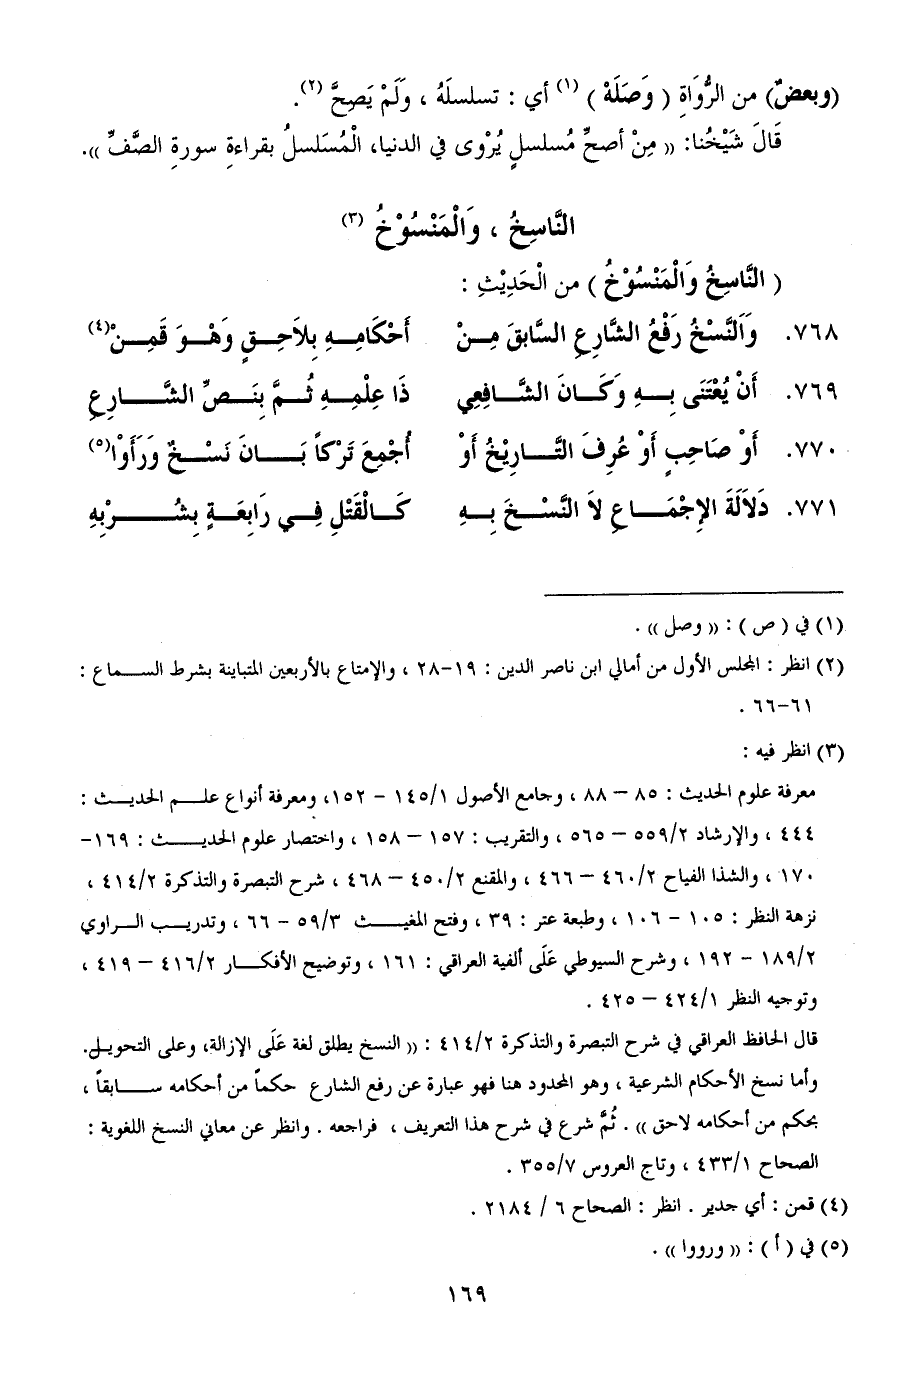 (وبعضٌ) من الرُّوَاةِ ( وَصَلَهْ ) (١) أي : تسلسلَهُ ، وَلَمْ يَصِحَّ (٢).
قَالَ شَيْخُنا: (( مِنْ أصحِّ مُسلسلٍ يُرْوى في الدنيا، الْمُسَلسلُ بقراءةِ سورةِ الصَّفِّ )).
النَّاسِخُ ، وَالْمَنْسُوْخُ (٣)
( النَّاسِخُ وَالْمَنْسُوْخُ ) من الْحَدِيْثِ :
٧٦٨. وَالنَّسْخُ رَفْعُ الشَّارِعِ السَّابقَ مِـنْ أَحْكَامِـهِ بِلاَحِـقٍ وَهْـوَ قَمِـنْ(٤)
٧٦٩. أَنْ يُعْتَنَى بِـهِ وَكَـانَ الشَّـافِعِي ذَا عِلْمِـهِ ثُـمَّ بِنَـصِّ الشَّـارِعِ
٧٧٠. أَوْ صَاحِبٍ أَوْ عُرِفَ التَّـارِيْخُ أَوْ أُجْمِعَ تَرْكاً بَـانَ نَسْـخٌ وَرَأَوْا(٥)
٧٧١. دَلاَلَةَ الإِجْمَـاعِ لاَ النَّسْـخَ بِـهِ كَـالْقَتْلِ فِـي رَابِعَـةٍ بِشُـرْبِهِ
(١) في ( ص ) : (( وصل )) .
(٢) انظر : المجلس الأول من أمالي ابن ناصر الدين : ١٩-٢٨ ، والإمتاع بالأربعين المتباينة بشرط السـماع :
٦١-٦٦ .
(٣) انظر فيه :
معرفة علوم الحديث : ٨٥ – ٨٨ ، وجامع الأصول ١٤٥/١ – ١٥٢، ومعرفة أنواع علـم الحديـث :
٤٤٤ ، والإرشاد ٥٥٩/٢ – ٥٦٥ ، والتقريب : ١٥٧ – ١٥٨ ، واختصار علوم الحديـث : ١٦٩-
١٧٠ ، والشذا الفياح ٤٦٠/٢ – ٤٦٦ ، والمقنع ٤٥٠/٢ – ٤٦٨ ، شرح التبصرة والتذكرة ٤١٤/٢ ،
نزهة النظر : ١٠٥ – ١٠٦ ، وطبعة عتر : ٣٩ ، وفتح المغيـث ٥٩/٣ – ٦٦ ، وتدريـب الـراوي
١٨٩/٢ – ١٩٢ ، وشرح السيوطي عَلَى ألفية العراقي : ١٦١ ، وتوضيح الأفكـار ٤١٦/٢ – ٤١٩ ،
وتوجيه النظر ٤٢٤/١ – ٤٢٥ .
قال الحافظ العراقي في شرح التبصرة والتذكرة ٤١٤/٢ : (( النسخ يطلق لغة عَلَى الإزالة، وعلى التحويل.
وأما نسخ الأحكام الشرعية ، وهو المحدود هنا فهو عبارة عن رفع الشارع حكماً من أحكامه سـابقاً ،
بحكم من أحكامه لاحق )) . ثُمَّ شرع في شرح هذا التعريف ، فراجعه . وانظر عن معاني النسخ اللغوية :
الصحاح ٤٣٣/١ ، وتاج العروس ٣٥٥/٧ .
(٤) قمن : أي جدير . انظر : الصحاح ٦ / ٢١٨٤ .
(٥) في ( أ ) : (( ورووا )) .
١٦٩